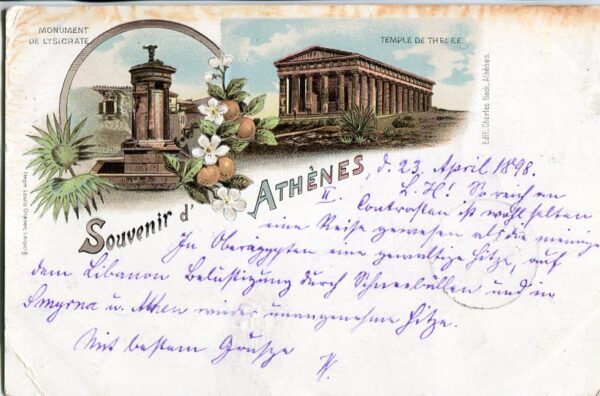 MONUMENT
DE LYSICRATE.
TEMPLE DE THESÉE.
Edit. Charles Beck, Athènes.
Impr. Louis Glaser, Leipzig.
Souvenir d'ATHÈNES, d. 23. April 1898.
II. L. H! So reich an
Contrasten ist wohl selten
eine Reise gewesen als die meinige
In Oberägypten eine gewaltige Hitze, auf
dem Libanon Belustigung durch Schneebällen und in
Smyrna u. Athen wieder unangenehme Hitze.
Mit bestem Grusze
W.